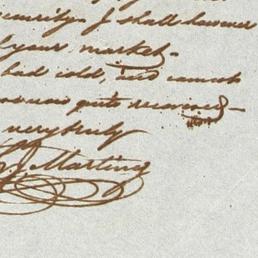 security I shall however
your market
bad cold, and cannot
quite recovered
very truly
Martin